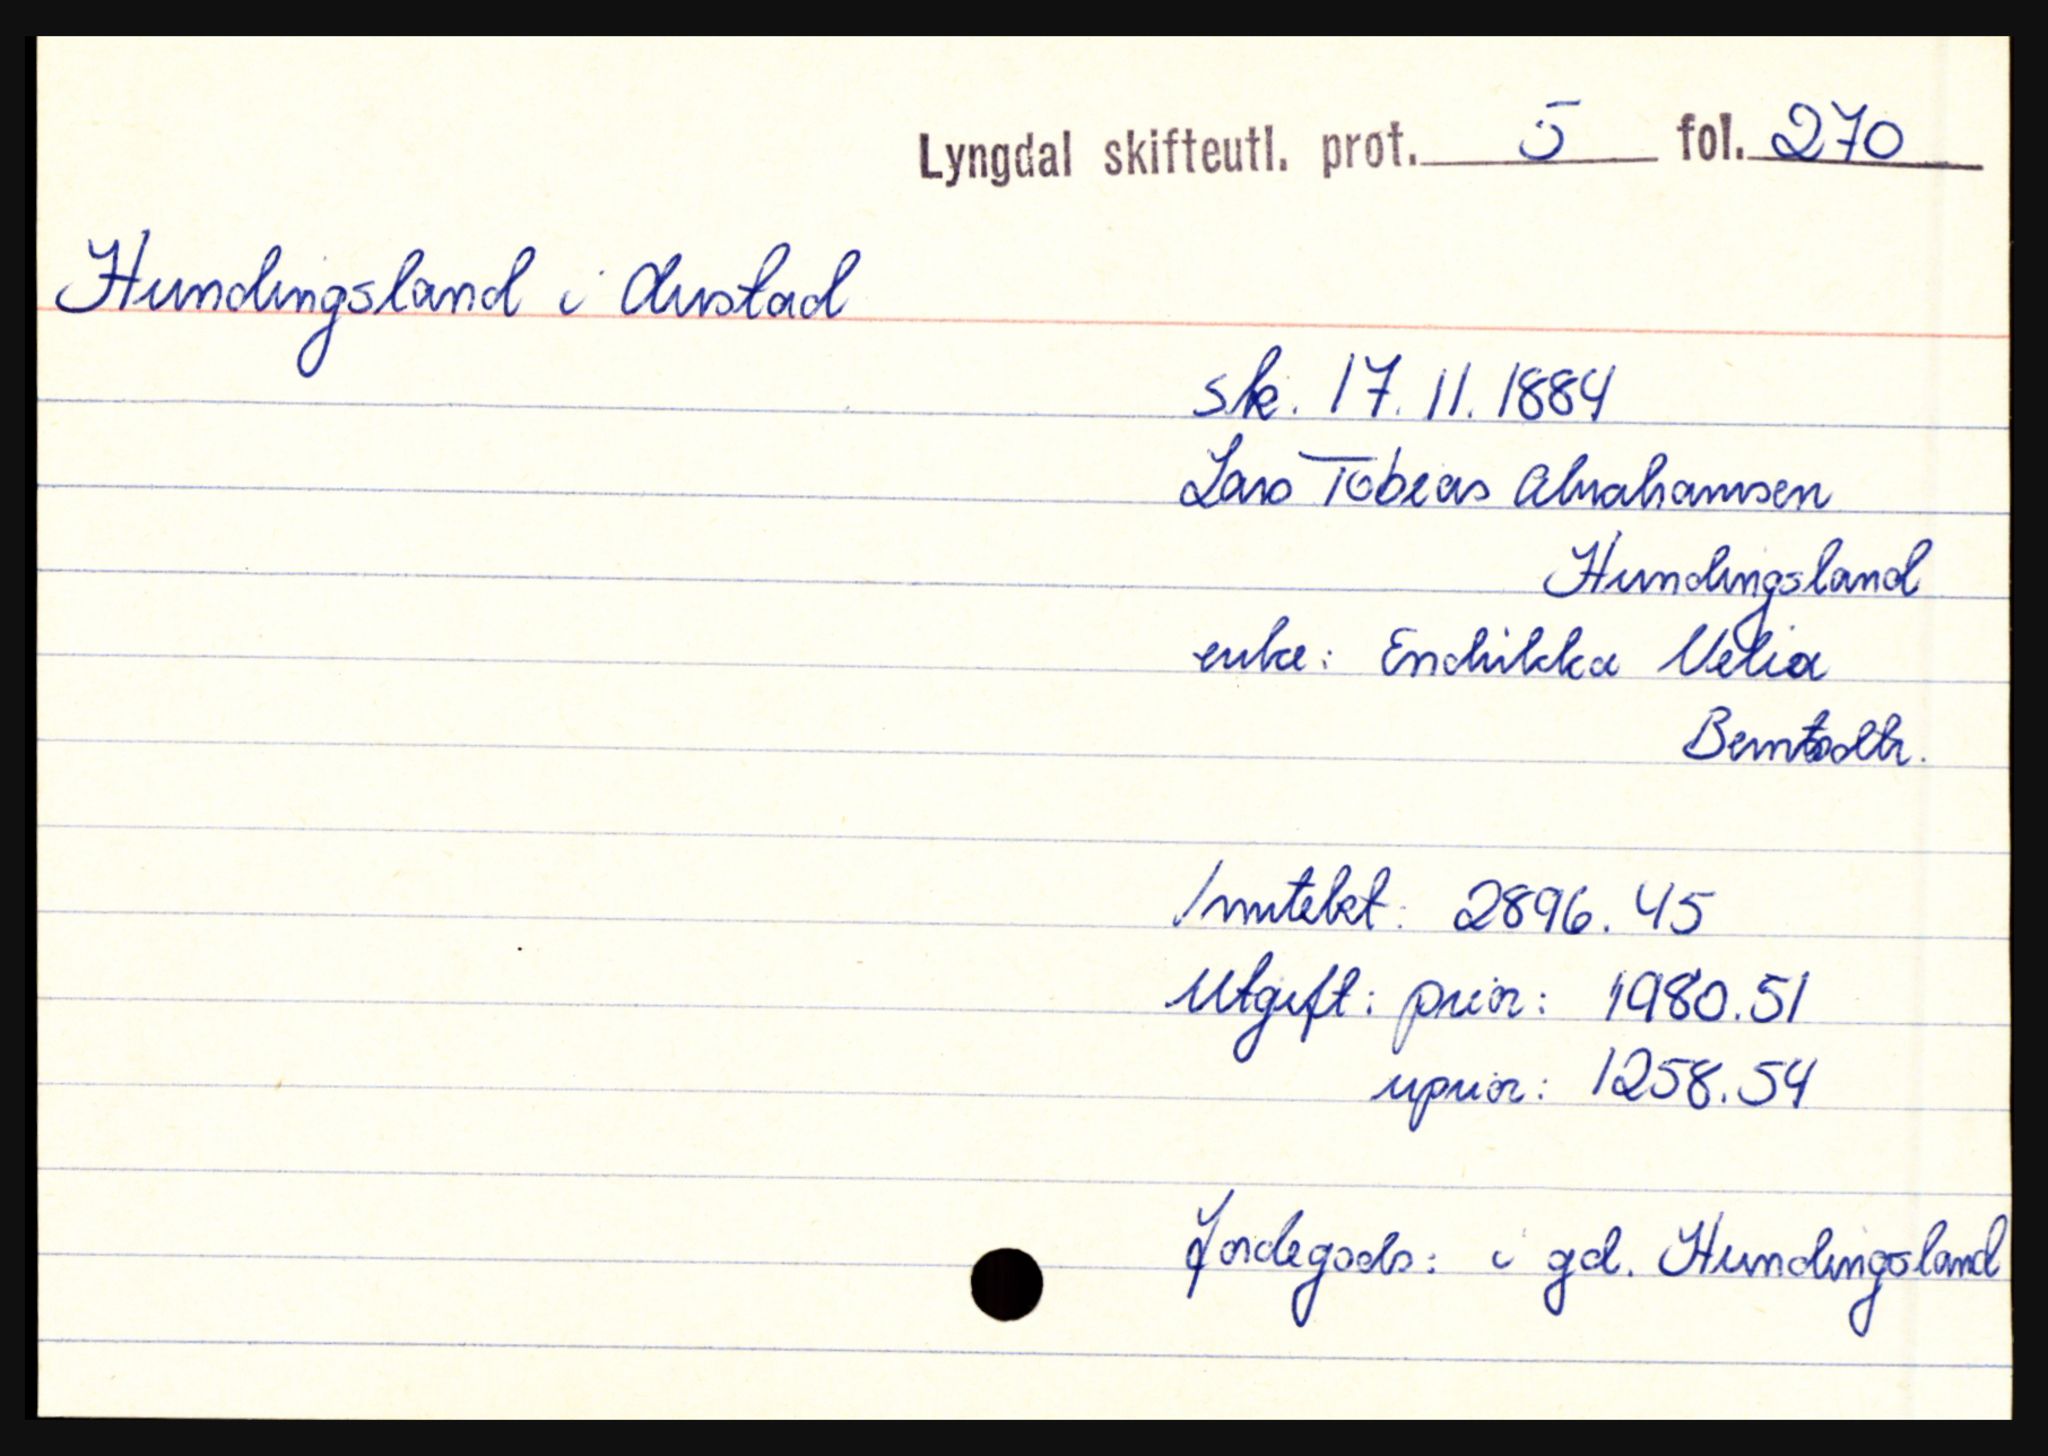 Lyngdal skifteutl. prot. 5 fol. 270
Hundingsland i Austad
sk. 17.11.1884
Lars Tobias Abrahamsen
Hundingsland
enke: Endrikka Velia
Berntsdtr.
Inntekt: 2896.45
Utgift: prior: 1980.51
uprior: 1258.54
Jordegods: i gd. Hundingsland